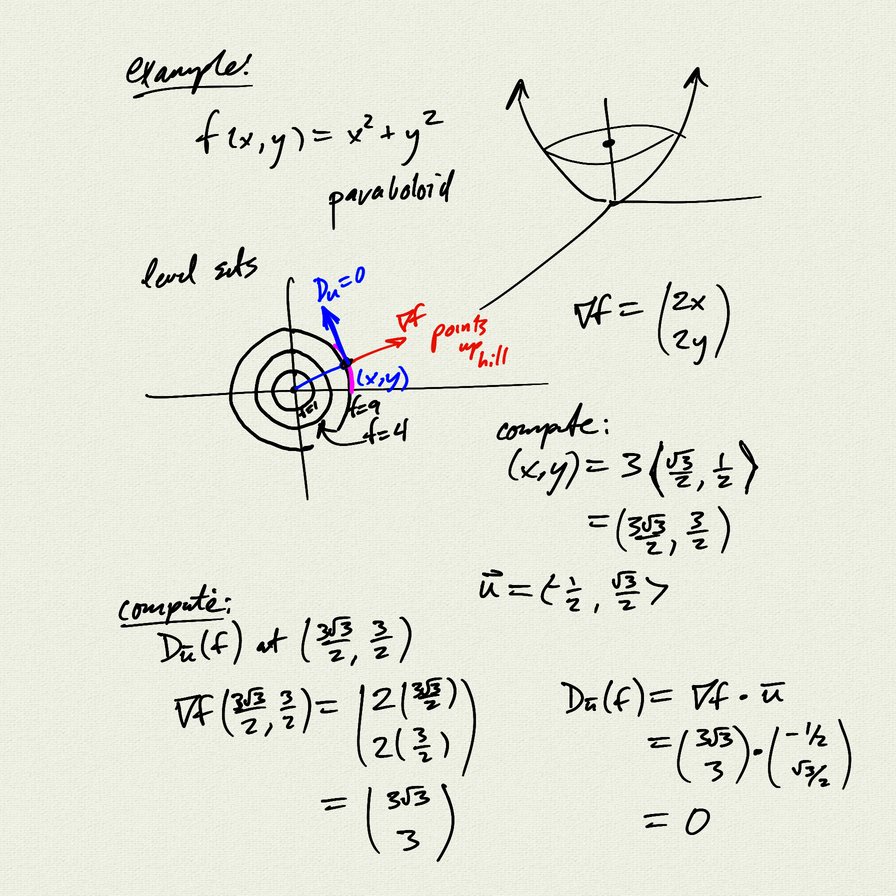 example:
f(x,y) = x² + y²
paraboloid
level sets
Du=0
∇f
points
up
hill
(x,y)
f=1
f=9
f=4
∇f = (2x
2y)
compute:
(x,y) = 3⟨√3/2, 1/2⟩
= (3√3/2, 3/2)
u⃗ = ⟨-1/2, √3/2⟩
compute:
Dū(f) at (3√3/2, 3/2)
∇f(3√3/2, 3/2) = (2(3√3/2)
2(3/2))
= (3√3
3)
Dū(f) = ∇f · ū
= (3√3
3) · (-1/2
√3/2)
= 0